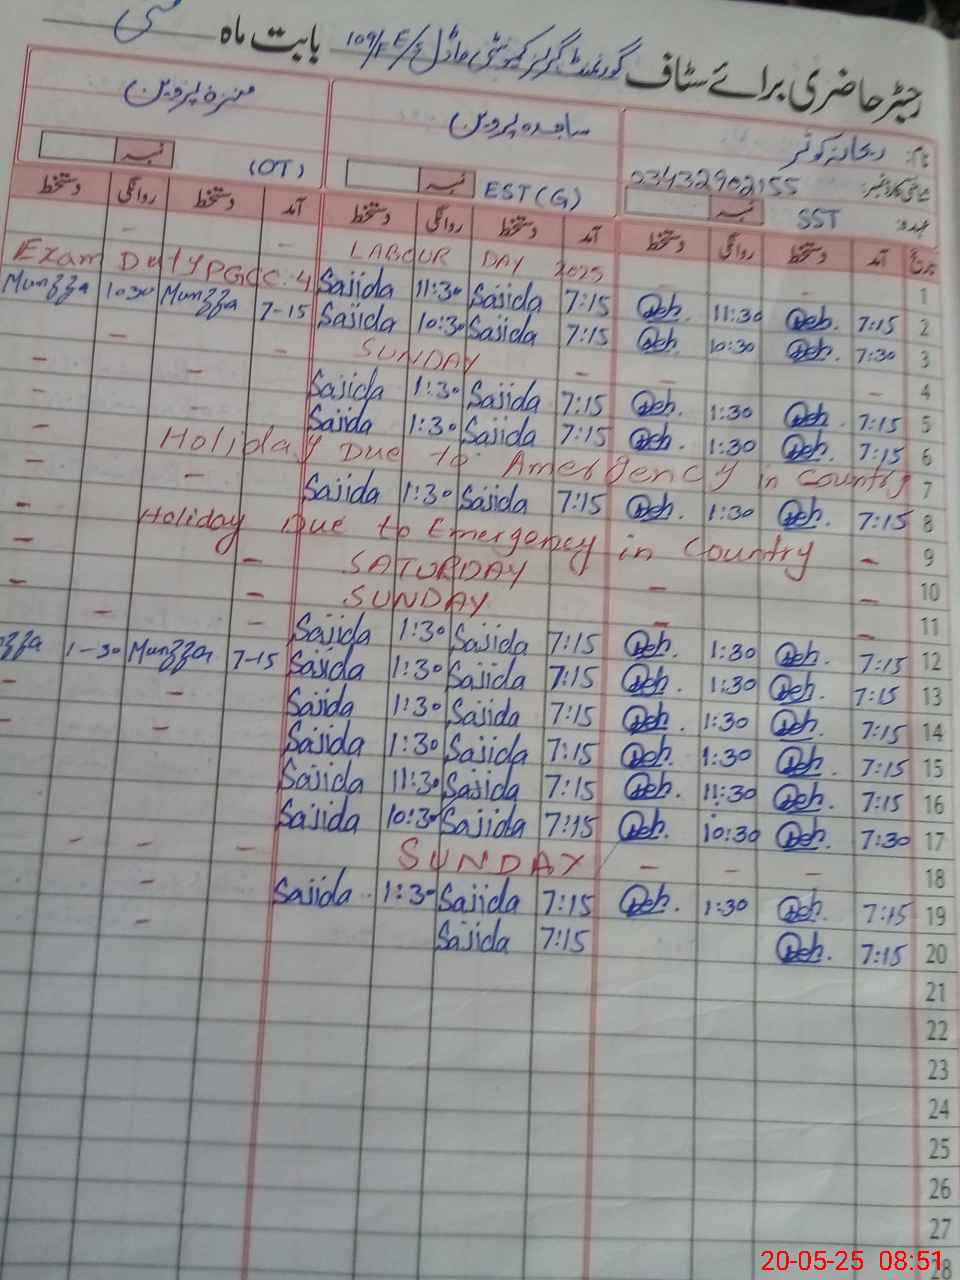 رجسٹر حاضری برائے سٹاف گورنمنٹ گرلز کمیونٹی ماڈل E/E 109/F بابت ماہ مئی
نام: ریحانہ کوثر ساجدہ پروین منزہ پروین
شناختی کارڈ نمبر: 03432902155
عہدہ SST نمبر EST (G) نمبر (OT) نمبر
تاریخ آمد دستخط روانگی دستخط آمد دستخط روانگی دستخط آمد دستخط روانگی دستخط
1 - - LABOUR DAY 2025 - -
Exam Duty PGCC. 4
2 7:15 Reh. 11:30 Reh. 7:15 Sajida 11:30 Sajida 7-15 Munzza 1030 Munzza
3 7:30 Reh. 10:30 Reh. 7:15 Sajida 10:30 Sajida - -
4 - - - SUNDAY - -
5 7:15 Reh. 1:30 Reh. 7:15 Sajida 1:30 Sajida -
6 7:15 Reh. 1:30 Reh. 7:15 Sajida 1:30 Sajida -
7 Holiday Due to Amergency in Country -
8 7:15 Reh. 1:30 Reh. 7:15 Sajida 1:30 Sajida - -
9 - Holiday Due to Emergency in Country -
10 - - SATURDAY - -
11 - - SUNDAY - -
12 7:15 Reh. 1:30 Reh. 7:15 Sajida 1:30 Sajida - -
13 7:15 Reh. 1:30 Reh. 7:15 Sajida 1:30 Sajida 7-15 Munzza 1-30 zza
14 7:15 Reh. 1:30 Reh. 7:15 Sajida 1:30 Sajida - -
15 7:15 Reh. 1:30 Reh. 7:15 Sajida 1:30 Sajida - -
16 7:15 Reh. 11:30 Reh. 7:15 Sajida 11:30 Sajida
17 7:30 Reh. 10:30 Reh. 7:15 Sajida 10:30 Sajida
18 - - - SUNDAY - - -
19 7:15 Reh. 1:30 Reh. 7:15 Sajida 1:30 Sajida -
20 7:15 Reh. 7:15 Sajida -
21
22
23
24
25
26
27
28
20-05-25 08:51